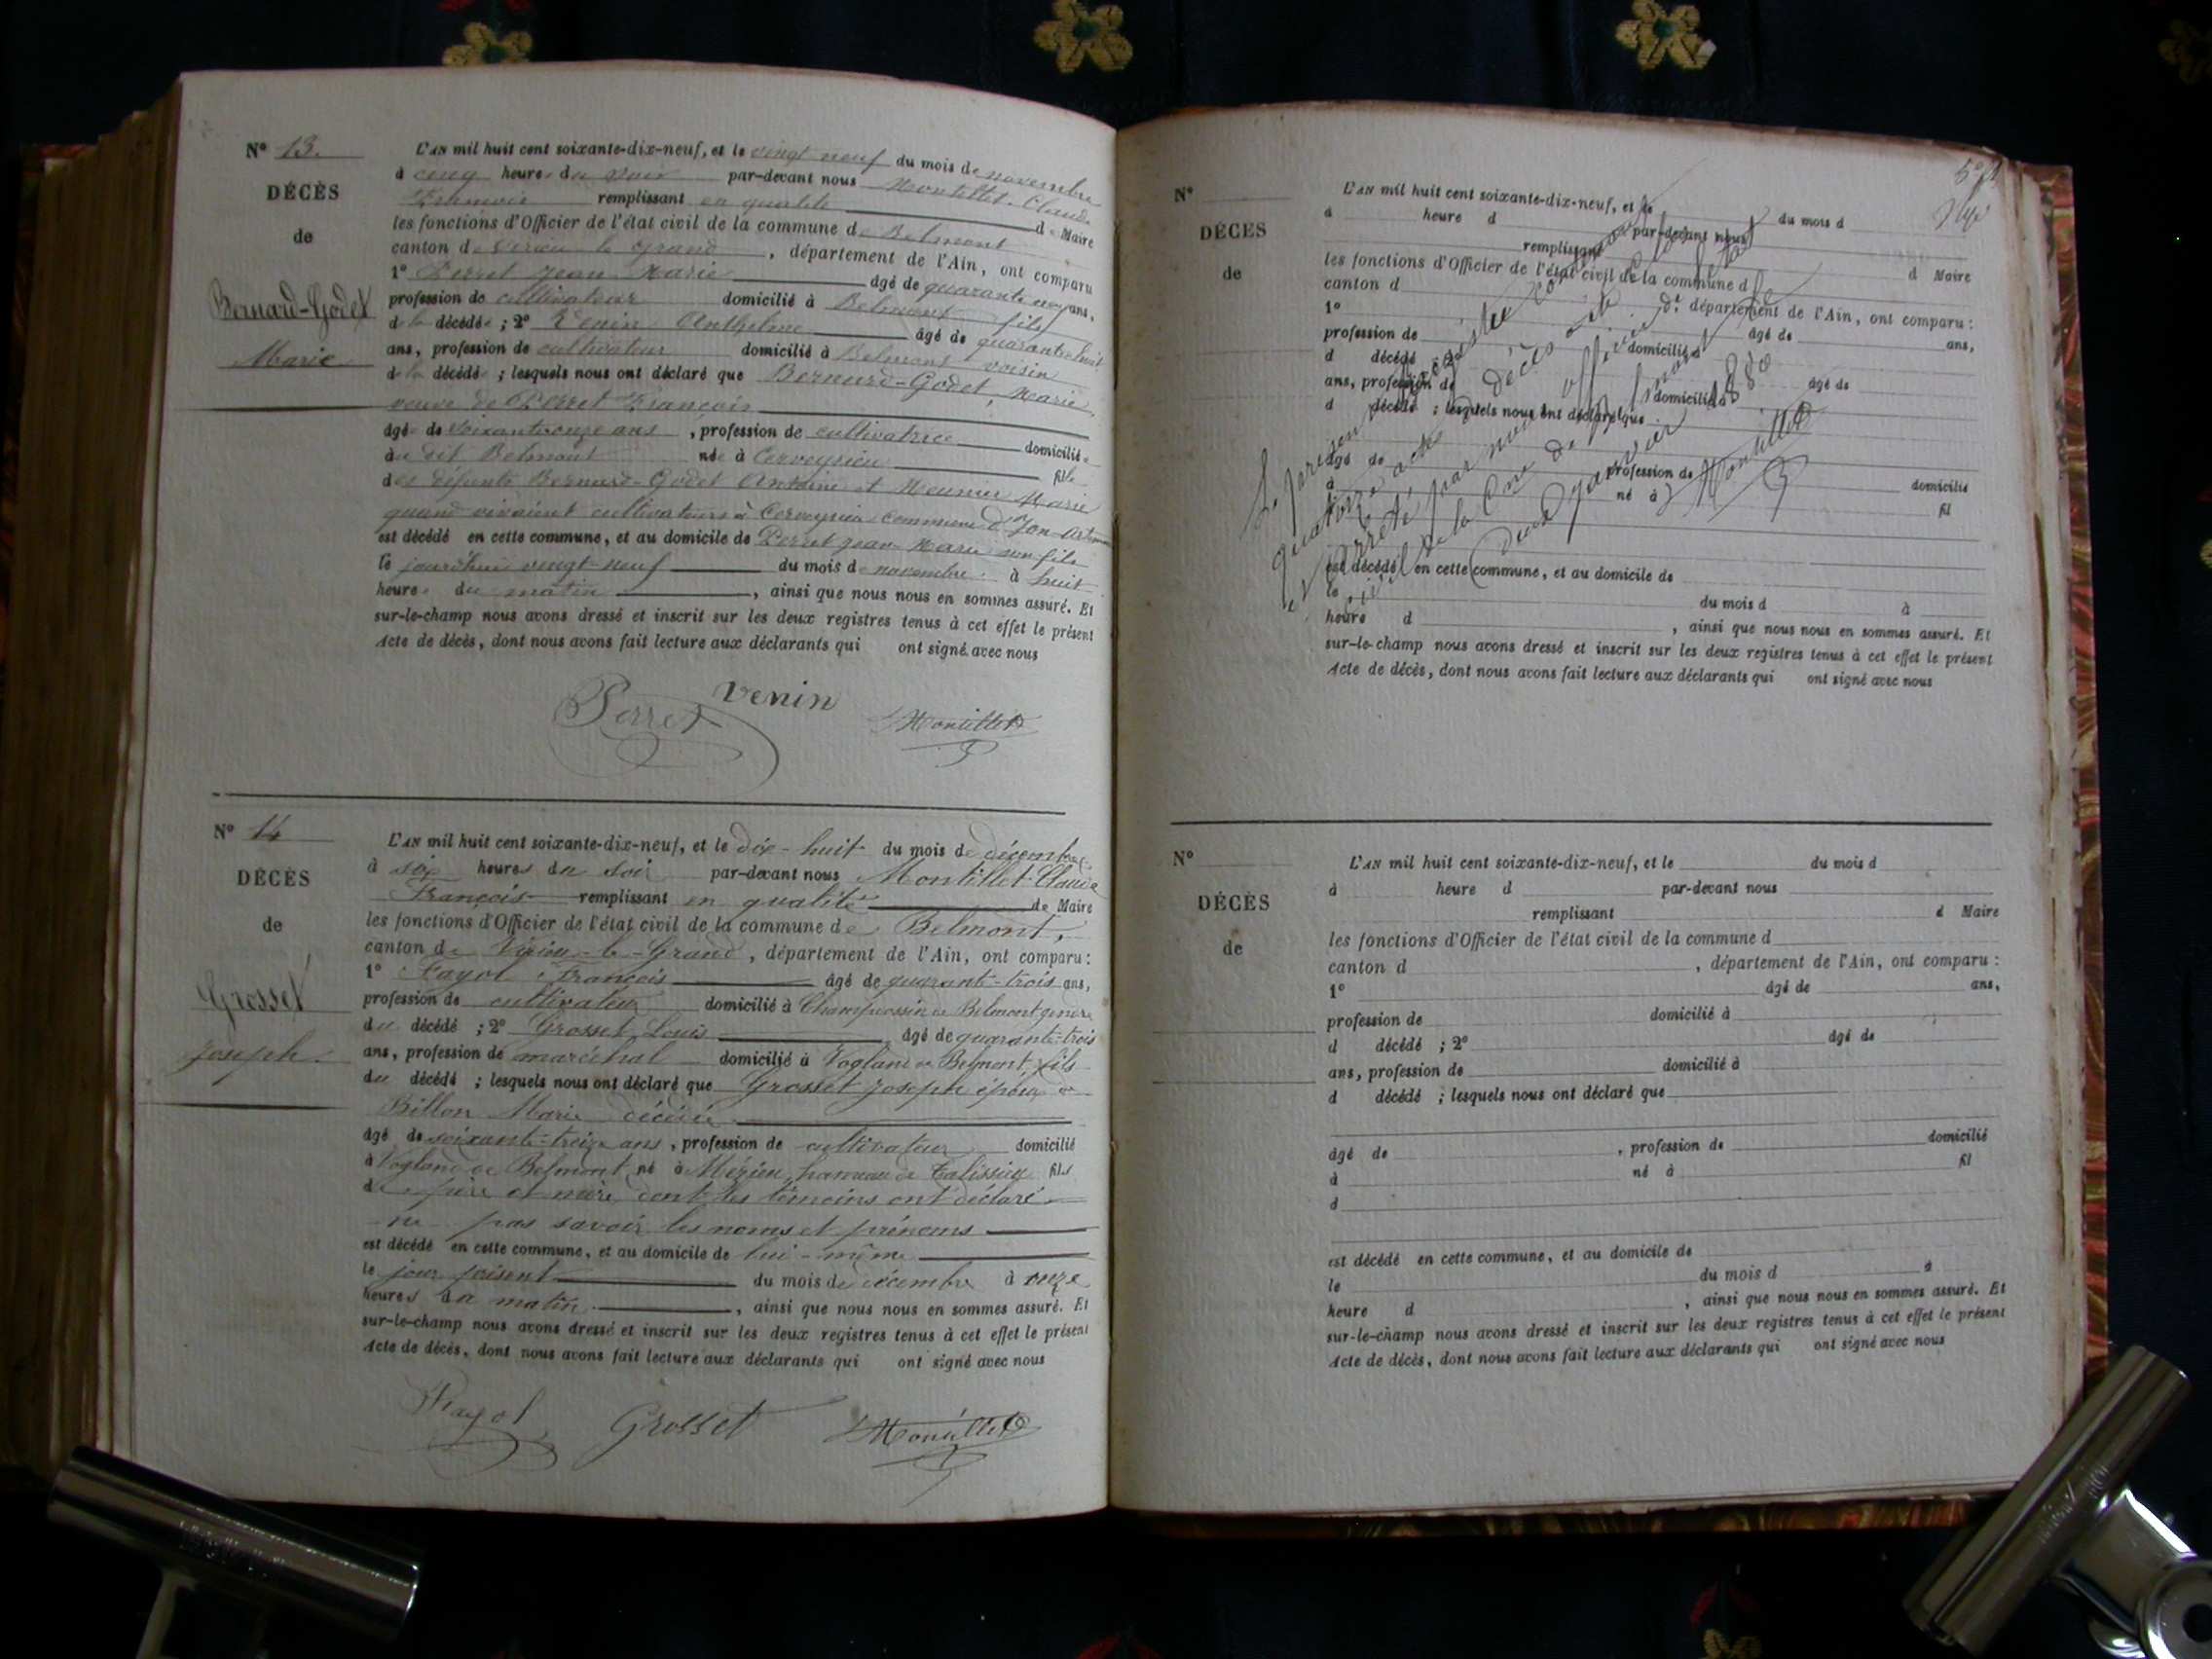 N° 13.
DÉCÈS
de
Bernard-Godet
Marie
L'AN mil huit cent soixante-dix-neuf, et le vingt neuf du mois de novembre
à cinq heures du soir par-devant nous Montillet Claude
François remplissant en qualité de Maire
les fonctions d'Officier de l'état civil de la commune de Belmont
canton de Virieu le Grand, département de l'Ain, ont comparu
1° Perret Jean Marie âgé de quarante ans,
profession de cultivateur domicilié à Belmont fils
de la décédée ; 2° Venin Anthelme âgé de quarante huit
ans, profession de cultivateur domicilié à Belmont voisin
de la décédée ; lesquels nous ont déclaré que Bernard-Godet, Marie,
veuve de Perret François
âgée de soixante onze ans, profession de cultivatrice domiciliée
au dit Belmont née à Cerveyrieu fille
des défunts Bernard-Godet Antoine et Meunier Marie
quand vivaient cultivateurs à Cerveyrieu commune d'
est décédé en cette commune, et au domicile de Perret Jean-Marie son fils
le jourd'hui vingt-neuf du mois de novembre à huit
heures du matin, ainsi que nous nous en sommes assuré. Et
sur-le-champ nous avons dressé et inscrit sur les deux registres tenus à cet effet le présent
Acte de décès, dont nous avons fait lecture aux déclarants qui ont signé avec nous
Perret Venin Montillet
N° 14
DÉCÈS
de
Grosset
Joseph.
L'AN mil huit cent soixante-dix-neuf, et le dix-huit du mois de décembre
à six heures du soir par-devant nous Montillet Claude
François remplissant en qualité de Maire
les fonctions d'Officier de l'état civil de la commune de Belmont,
canton de Virieu-le-Grand, département de l'Ain, ont comparu :
1° Fayol François âgé de quarante-trois ans,
profession de cultivateur domicilié à Champossin de Belmont gendre
du décédé ; 2° Grosset Louis âgé de quarante-trois
ans, profession de maréchal domicilié à Vogland de Belmont, fils
du décédé ; lesquels nous ont déclaré que Grosset Joseph époux de
Billon Marie décédée
âgé de soixante-treize ans, profession de cultivateur domicilié
à Vogland de Belmont né à Mérieu, hameau de Talissieu fils
de père et mère dont les témoins ont déclaré
ne pas savoir les noms et prénoms
est décédé en cette commune, et au domicile de lui-même
le jour présent du mois de décembre à onze
heures du matin, ainsi que nous nous en sommes assuré. Et
sur-le-champ nous avons dressé et inscrit sur les deux registres tenus à cet effet le présent
Acte de décès, dont nous avons fait lecture aux déclarants qui ont signé avec nous
Fayol Grosset Montillet
N°
DÉCÈS
de
L'AN mil huit cent soixante-dix-neuf, et le du mois d
à heure d par-devant nous
remplissant d Maire
les fonctions d'Officier de l'état civil de la commune d
canton d, département de l'Ain, ont comparu :
1° âgé de ans,
profession de domicilié à
d décédé ; 2° âgé de
ans, profession de domicilié à
d décédé ; lesquels nous ont déclaré que
âgé de profession de domicilié
à né à fil
d
est décédé en cette commune, et au domicile de
le du mois d à
heure d, ainsi que nous nous en sommes assuré. Et
sur-le-champ nous avons dressé et inscrit sur les deux registres tenus à cet effet le présent
Acte de décès, dont nous avons fait lecture aux déclarants qui ont signé avec nous
Le présent registre
quatorze actes de décès a été
et arrêté par nous officier de l'état
civil de la Cne de Belmont le
deux janvier 1880
Montillet
N°
DÉCÈS
de
L'AN mil huit cent soixante-dix-neuf, et le du mois d
à heure d par-devant nous
remplissant d Maire
les fonctions d'Officier de l'état civil de la commune d
canton d, département de l'Ain, ont comparu :
1° âgé de ans,
profession de domicilié à
d décédé ; 2° âgé de
ans, profession de domicilié à
d décédé ; lesquels nous ont déclaré que
âgé de, profession de domicilié
à né à fil
d
est décédé en cette commune, et au domicile de
le du mois d à
heure d, ainsi que nous nous en sommes assuré. Et
sur-le-champ nous avons dressé et inscrit sur les deux registres tenus à cet effet le présent
Acte de décès, dont nous avons fait lecture aux déclarants qui ont signé avec nous